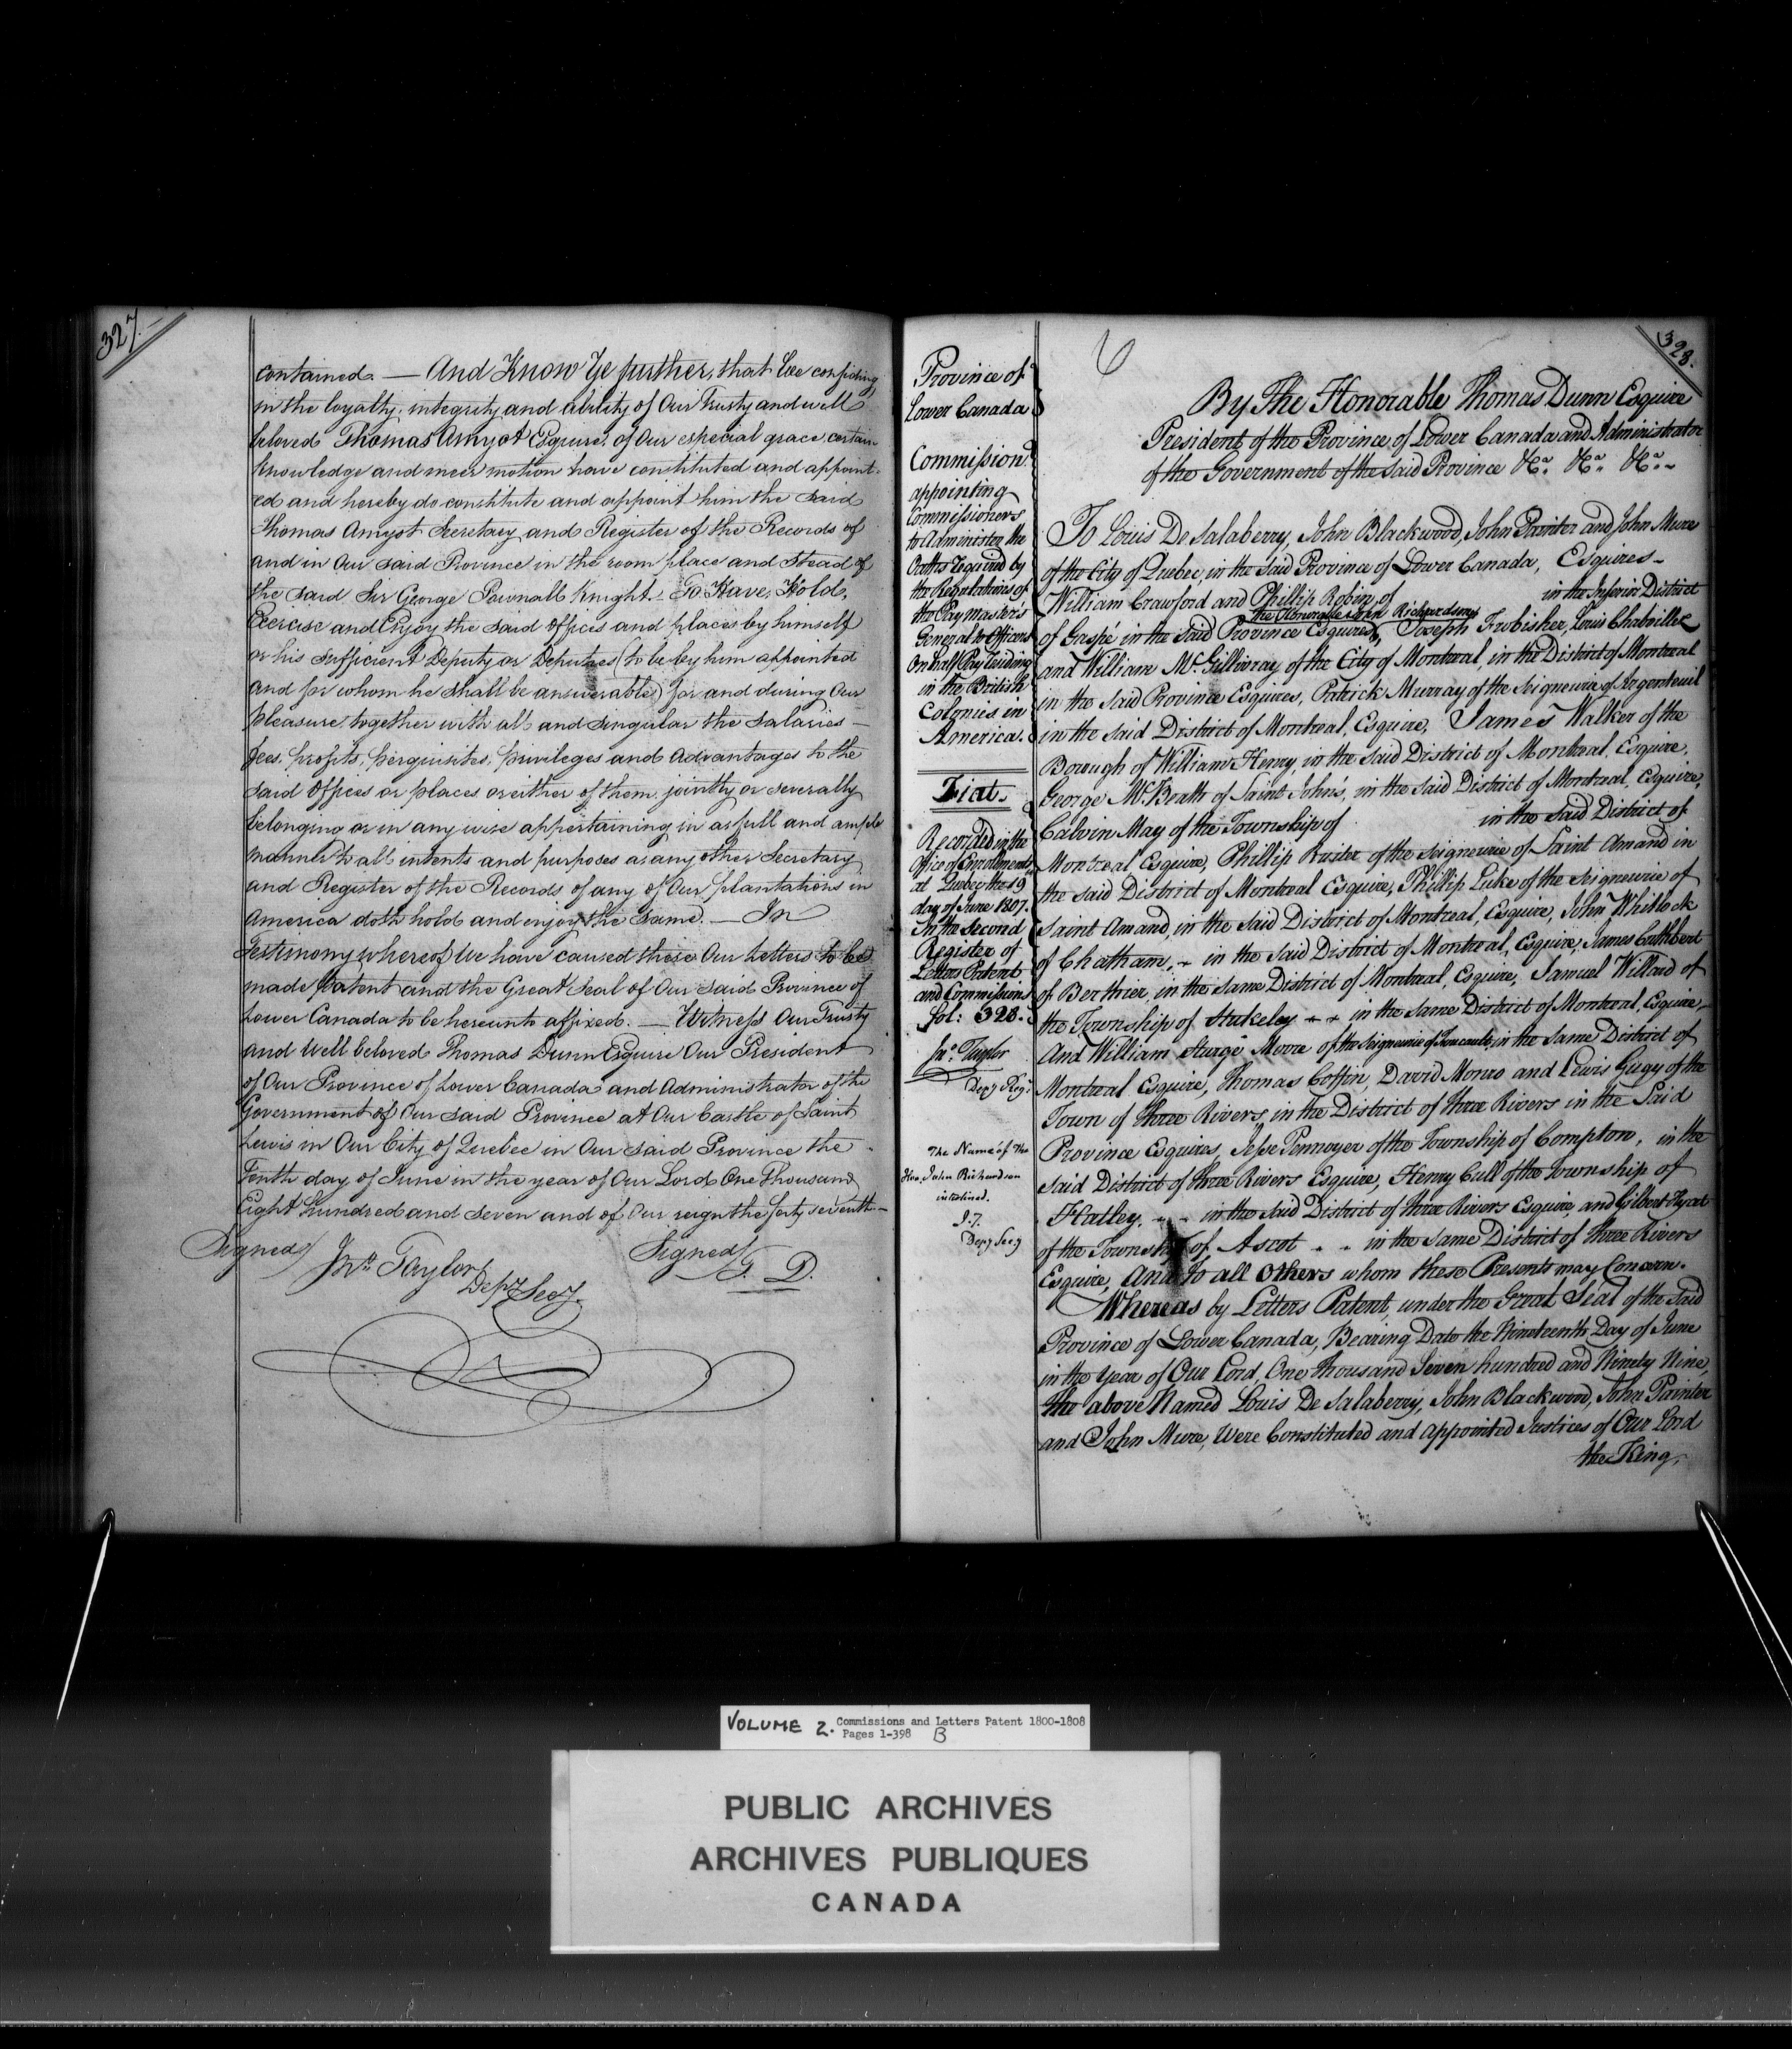 327.
contained. — And Know Ye further, that We confiding
in the loyalty, integrity and ability of Our Trusty and well
beloved Thomas Amyot Esquire, of Our especial grace, certain
knowledge and meer motion have constituted and appoint-
ed and hereby do constitute and appoint him the said
Thomas Amyot Secretary and Register of the Records of
and in Our said Province in the room place and Stead of
the said Sir George Pownall Knight. To Have, Hold,
Exercise and Enjoy the said offices and places by himself
or his sufficient Deputy or Deputies (to be by him appointed
and for whom he shall be answerable) for and during Our
pleasure together with all and singular the salaries —
fees, profits, perquisites, privileges and Advantages to the
said Offices or places or either of them, jointly or severally
belonging or in any wise appertaining in as full and ample
manner to all intents and purposes as any other Secretary
and Register of the Records of any of Our plantations in
America doth hold and enjoy the same. — In
Testimony whereof We have caused these Our Letters to be
made Patent and the Great Seal of Our said Province of
Lower Canada to be hereunto affixed. — Witness Our Trusty
and Well beloved Thomas Dunn Esquire Our President
of Our Province of Lower Canada and Administrator of the
Government of Our said Province at Our Castle of Saint
Lewis in Our City of Quebec in Our said Province the
Tenth day of June in the year of Our Lord One Thousand
Eight hundred and seven and of Our reign the forty seventh —
Signed/ Jno. Taylor Signed/ T. D.
Depy Secy.
Province of
Lower Canada
Commission
appointing
Commissioners
to Administer the
Oaths Required by
the Regulations of
the Paymasters
General to Officers
on half Pay residing
in the British
Colonies in
America.
Fiat.
Recorded in the
Office of Enrollments
at Quebec the 19
day of June 1807.
In the Second
Register of
Letters Patent
and Commissions
fol: 328.
Jno. Taylor
Depy Regr.
The Name of the
Hon. John Richardson
interlined.
J. T.
Depy Secy
328.
By The Honorable Thomas Dunn Esquire
President of the Province of Lower Canada and Administrator
of the Government of the said Province &ca. &ca. &ca. -
To Louis De Salaberry, John Blackwood, John Painter and John Mure
of the City of Quebec, in the said Province of Lower Canada, Esquires -
William Crawford and Phillip Robin, of in the Inferior District
the Honorable John Richardson,
of Gaspé in the said Province Esquires, Joseph Frobisher, Louis Chaboillez
and William McGillivray of the City of Montreal, in the District of Montreal
in the said Province Esquires, Patrick Murray of the Seigneurie of Argenteuil
in the said District of Montreal, Esquire, James Walker of the
Borough of William Henry, in the said District of Montreal, Esquire,
George McBeath of Saint John's, in the said District of Montreal, Esquire,
Calvin May of the Township of in the said District of
Montreal Esquire, Phillip Ruiter of the Seigneurie of Saint Amand in
the said District of Montreal Esquire, Phillip Luke of the Seigneurie of
Saint Amand, in the said District of Montreal, Esquire, John Whitlock
of Chatham, - in the said District of Montreal, Esquire, James Cuthbert
of Berthier, in the same District of Montreal, Esquire, Samuel Willard of
the Township of Stukeley - - in the same District of Montreal, Esquire,
And William Sturge Moore of the Seigneurie of Foucault, in the Same District of
Montreal Esquire, Thomas Coffin, David Monro and Lewis Gugy of the
Town of Three Rivers, in the District of three Rivers in the Said
Province Esquires, Jesse Pennoyer of the Township of Compton, in the
said District of three Rivers Esquire, Henry Cull of the Township of
Hatley, - - in the said District of three Rivers Esquire, and Gilbert Hyat
of the Township of Ascot - - in the same District of three Rivers
Esquire, And to all Others whom these Presents may Concern.
Whereas by Letters Patent, under the Great Seal of the said
Province of Lower Canada, Bearing Date the Nineteenth Day of June
in the Year of Our Lord, One thousand Seven hundred and Ninety Nine,
the above Named Louis De Salaberry, John Blackwood, John Painter
and John Mure, Were Constituted and appointed Justices of Our Lord
the King,
VOLUME 2. Commissions and Letters Patent 1800-1808
Pages 1-398 B
PUBLIC ARCHIVES
ARCHIVES PUBLIQUES
CANADA